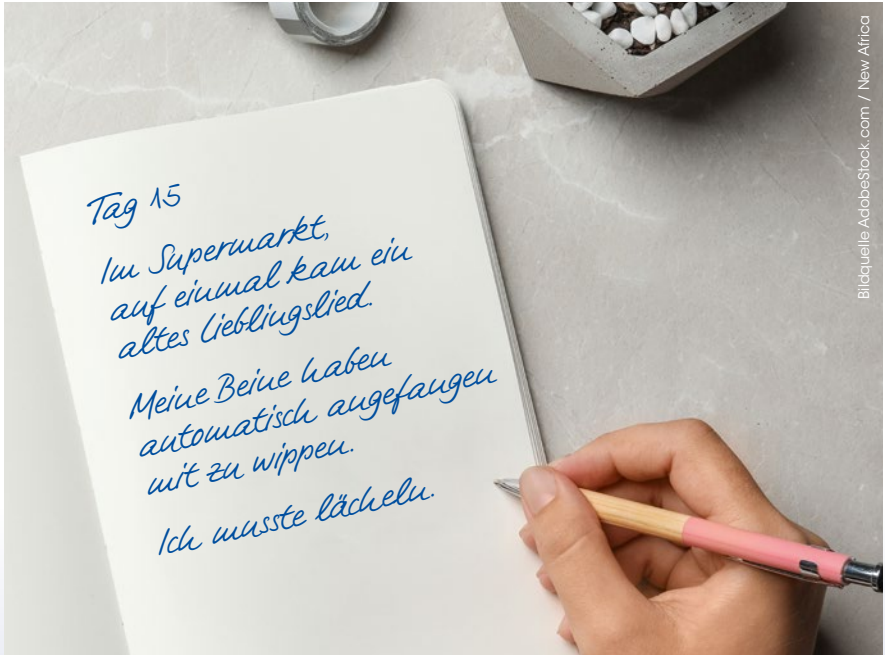 Tag 15
Im Supermarkt,
auf einmal kam ein
altes Lieblingslied.
Meine Beine haben
automatisch angefangen
mit zu wippen.
Ich musste lächeln.
Bildquelle AdobeStock.com / New Africa